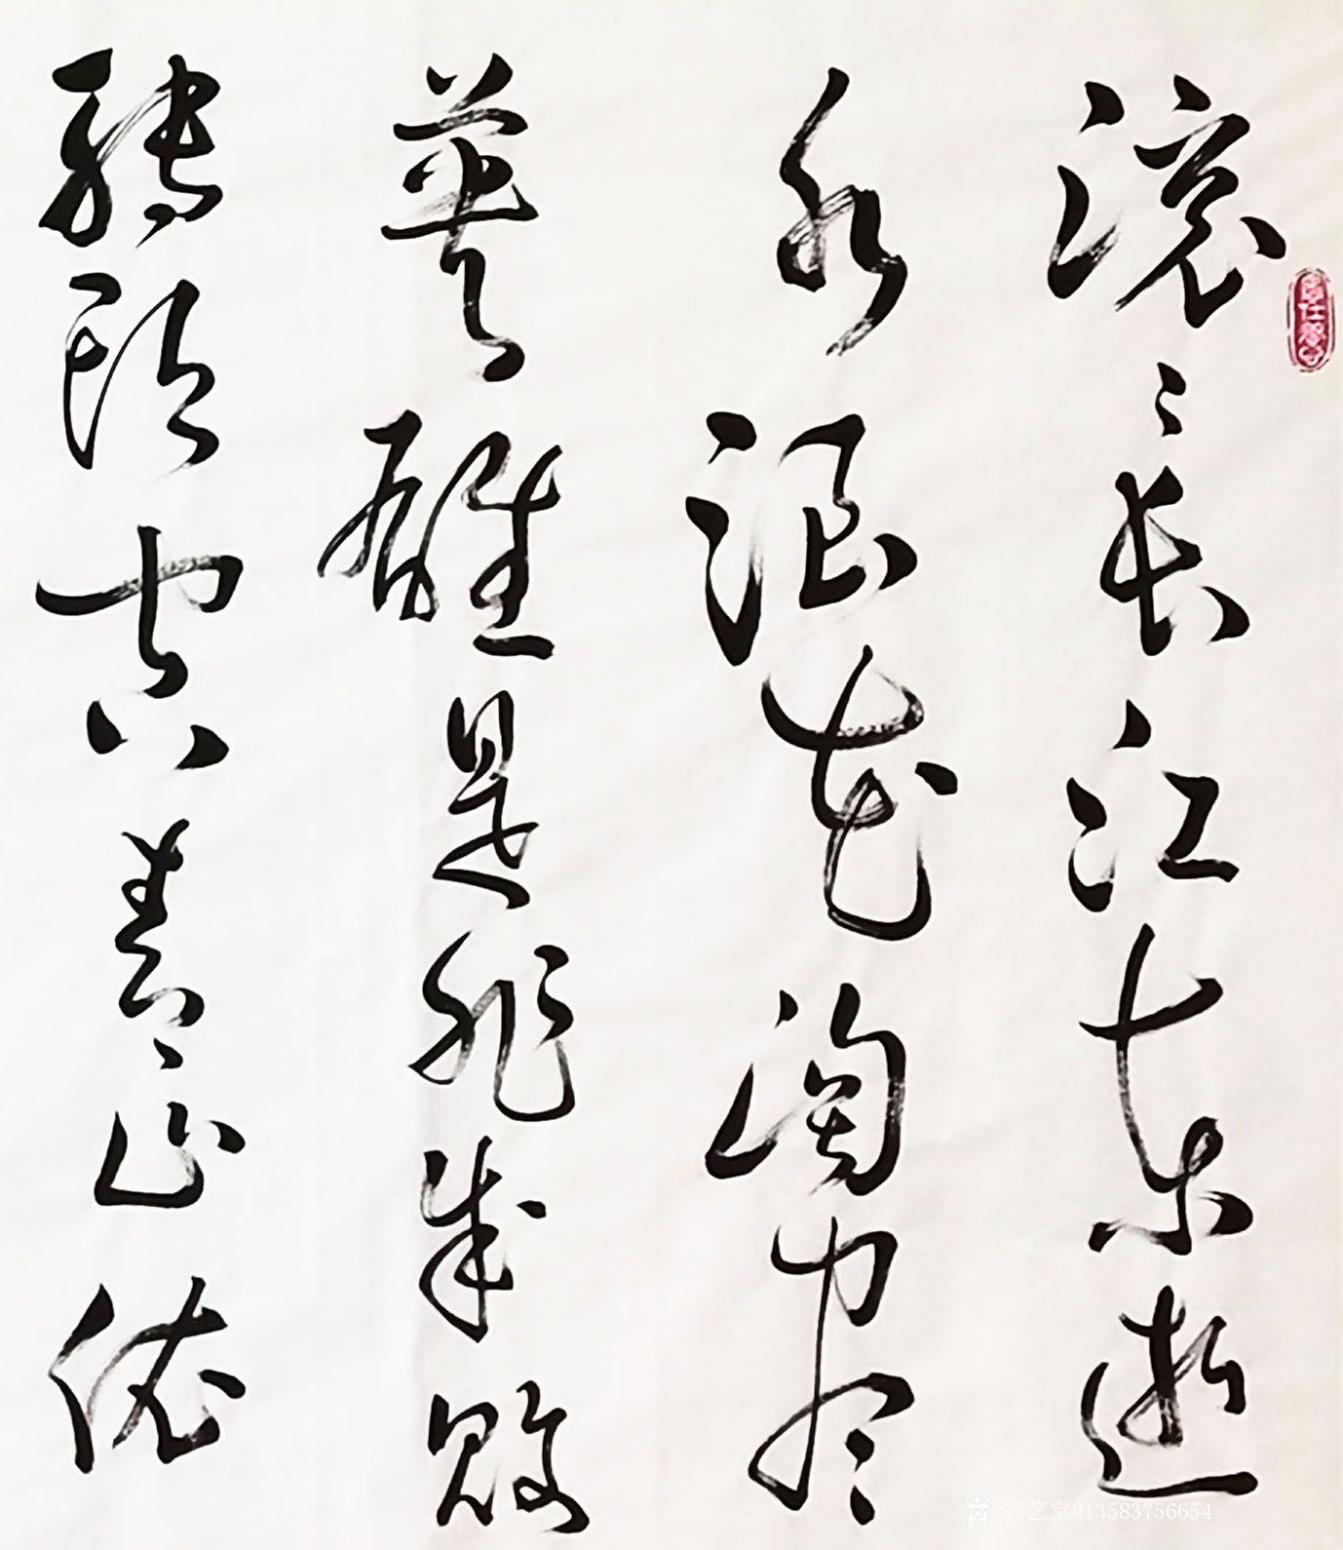 滚〻长江东逝
水浪花淘尽
英雄是非成败
转头空青山依
兴艺堂@13583756654